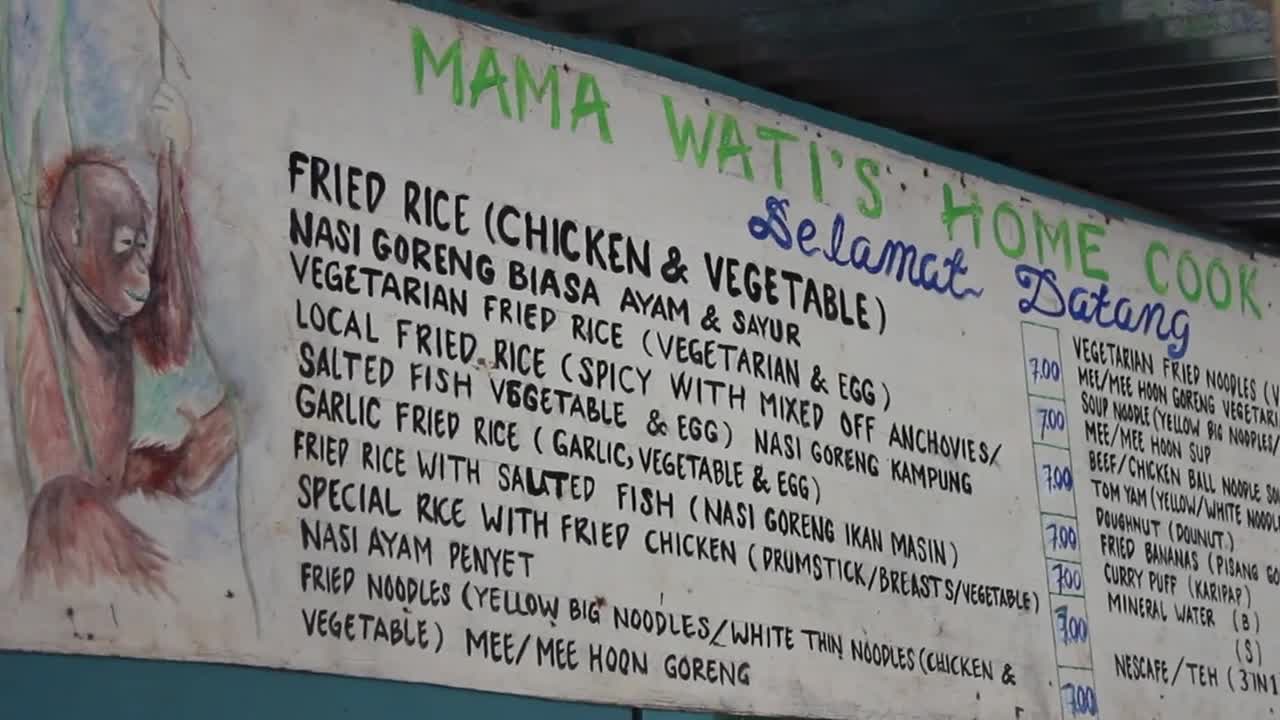 MAMA WATI'S HOME COOK
Selamat Datang
FRIED RICE (CHICKEN & VEGETABLE)
NASI GORENG BIASA AYAM & SAYUR
VEGETARIAN FRIED RICE (VEGETARIAN & EGG)
LOCAL FRIED RICE (SPICY WITH MIXED OFF ANCHOVIES/
SALTED FISH VEGETABLE & EGG) NASI GORENG KAMPUNG
GARLIC FRIED RICE (GARLIC, VEGETABLE & EGG)
FRIED RICE WITH SALTED FISH (NASI GORENG IKAN MASIN)
SPECIAL RICE WITH FRIED CHICKEN (DRUMSTICK/BREASTS/VEGETABLE)
NASI AYAM PENYET
FRIED NOODLES (YELLOW BIG NOODLES/WHITE THIN NOODLES (CHICKEN &
VEGETABLE) MEE/MEE HOON GORENG
7.00
7.00
7.00
7.00
7.00
7.00
7.00
VEGETARIAN FRIED NOODLES (
MEE/MEE HOON GORENG
SOUP NOODLE (YELLOW BIG NOODLES/
MEE/MEE HOON SUP
BEEF/CHICKEN BALL NOODLE
TOM YAM (YELLOW/WHITE
DOUGHNUT (DOUNUT)
FRIED BANANAS (PISANG
CURRY PUFF (KARIPAP)
MINERAL WATER (B)
(S)
NESCAFE/TEH (3 IN 1